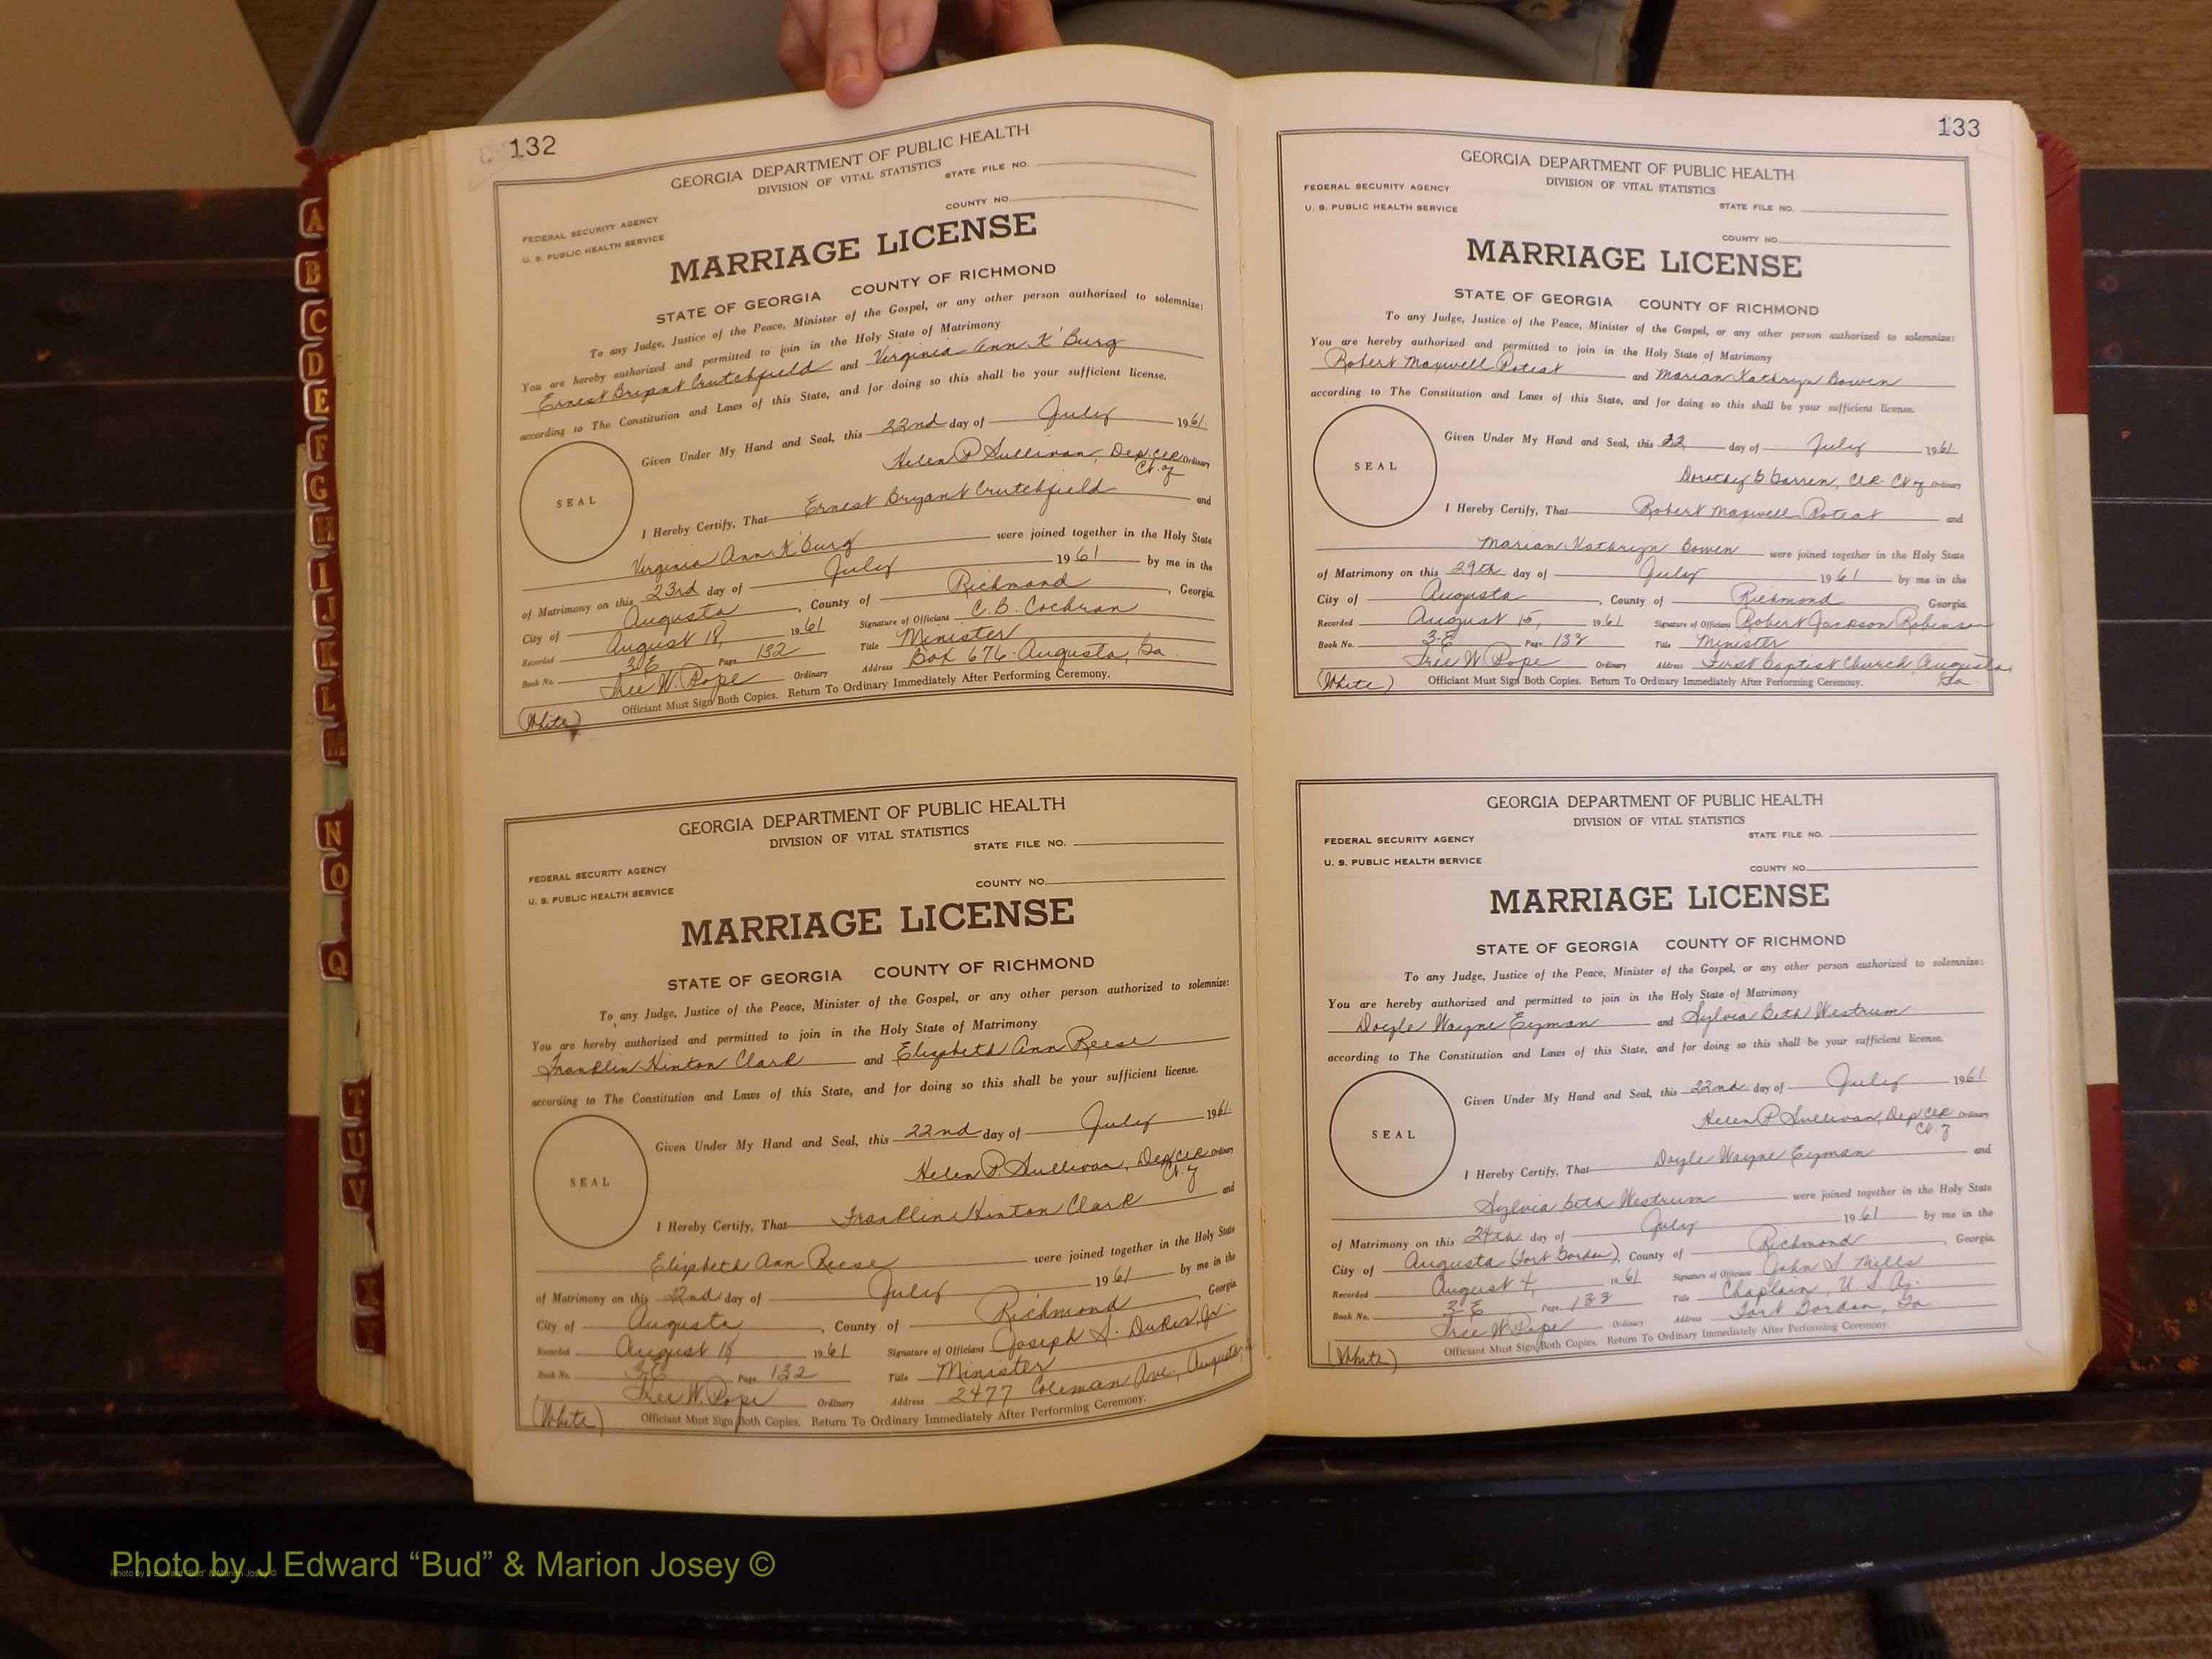 132
GEORGIA DEPARTMENT OF PUBLIC HEALTH
DIVISION OF VITAL STATISTICS
STATE FILE NO.
COUNTY NO.
FEDERAL SECURITY AGENCY
U. S. PUBLIC HEALTH SERVICE
MARRIAGE LICENSE
STATE OF GEORGIA COUNTY OF RICHMOND
To any Judge, Justice of the Peace, Minister of the Gospel, or any other person authorized to solemnize:
You are hereby authorized and permitted to join in the Holy State of Matrimony
Ernest Bryant Crutchfield and Virginia Ann K'Burg
according to The Constitution and Laws of this State, and for doing so this shall be your sufficient license.
Given Under My Hand and Seal, this 22nd day of July 1961.
Helen P Sullivan, Dep. Clk Ordinary
Ct. of
SEAL
I Hereby Certify, That Ernest Bryant Crutchfield and
Virginia Ann K'Burg were joined together in the Holy State
of Matrimony on this 23rd day of July 1961 by me in the
City of Augusta, County of Richmond, Georgia.
Recorded August 18, 1961 Signature of Officiant C. B. Cochran
Book No. 3-E Page 132 Title Minister
Tree W. Pope Ordinary Address Box 676 Augusta, Ga.
(White) Officiant Must Sign Both Copies. Return To Ordinary Immediately After Performing Ceremony.
GEORGIA DEPARTMENT OF PUBLIC HEALTH
DIVISION OF VITAL STATISTICS
STATE FILE NO.
FEDERAL SECURITY AGENCY
COUNTY NO.
U. S. PUBLIC HEALTH SERVICE
MARRIAGE LICENSE
STATE OF GEORGIA COUNTY OF RICHMOND
To any Judge, Justice of the Peace, Minister of the Gospel, or any other person authorized to solemnize:
You are hereby authorized and permitted to join in the Holy State of Matrimony
Franklin Hinton Clark and Elizabeth Ann Reese
according to The Constitution and Laws of this State, and for doing so this shall be your sufficient license.
Given Under My Hand and Seal, this 22nd day of July 1961.
Helen P. Sullivan, Dep Clk Ordinary
Ct. of
SEAL
I Hereby Certify, That Franklin Hinton Clark and
Elizabeth Ann Reese were joined together in the Holy State
of Matrimony on this 22nd day of July 1961 by me in the
City of Augusta, County of Richmond, Georgia
Recorded August 18 1961 Signature of Officiant Joseph S. Dukes, Jr.
Book No. 3-E Page 132 Title Minister
Tree W. Pope Ordinary Address 2477 Coleman Ave., Augusta,
(White) Officiant Must Sign Both Copies. Return To Ordinary Immediately After Performing Ceremony.
133
GEORGIA DEPARTMENT OF PUBLIC HEALTH
DIVISION OF VITAL STATISTICS
FEDERAL SECURITY AGENCY
U. S. PUBLIC HEALTH SERVICE
STATE FILE NO.
COUNTY NO.
MARRIAGE LICENSE
STATE OF GEORGIA COUNTY OF RICHMOND
To any Judge, Justice of the Peace, Minister of the Gospel, or any other person authorized to solemnize:
You are hereby authorized and permitted to join in the Holy State of Matrimony
Robert Maxwell Poteat and Marian Kathryn Bowen
according to The Constitution and Laws of this State, and for doing so this shall be your sufficient license.
Given Under My Hand and Seal, this 22 day of July 1961
Dorothy B Barren, Clk. Ct of Ordinary
SEAL
I Hereby Certify, That Robert Maxwell Poteat and
Marian Kathryn Bowen were joined together in the Holy State
of Matrimony on this 29th day of July 1961 by me in the
City of Augusta, County of Richmond, Georgia.
Recorded August 15, 1961 Signature of Officiant Robert Jackson Robinson
Book No. 3-E Page 133 Title Minister
Tree W. Pope Ordinary Address First Baptist Church Augusta,
Ga.
(White) Officiant Must Sign Both Copies. Return To Ordinary Immediately After Performing Ceremony.
GEORGIA DEPARTMENT OF PUBLIC HEALTH
DIVISION OF VITAL STATISTICS
FEDERAL SECURITY AGENCY
STATE FILE NO.
U. S. PUBLIC HEALTH SERVICE
COUNTY NO.
MARRIAGE LICENSE
STATE OF GEORGIA COUNTY OF RICHMOND
To any Judge, Justice of the Peace, Minister of the Gospel, or any other person authorized to solemnize:
You are hereby authorized and permitted to join in the Holy State of Matrimony
Doyle Wayne Eyman and Sylvia Beth Westrum
according to The Constitution and Laws of this State, and for doing so this shall be your sufficient license.
Given Under My Hand and Seal, this 22nd day of July 1961
Helen P Sullivan, Dep Clk Ordinary
Ct. of
SEAL
I Hereby Certify, That Doyle Wayne Eyman and
Sylvia Beth Westrum were joined together in the Holy State
of Matrimony on this 24th day of July 1961 by me in the
City of Augusta (Fort Gordon), County of Richmond, Georgia.
Recorded August 4, 1961 Signature of Officiant John S Mills
Book No. 3-E Page 133 Title Chaplain, U S A.
Tree W Pope Ordinary Address Fort Gordon, Ga.
(White) Officiant Must Sign Both Copies. Return To Ordinary Immediately After Performing Ceremony.
A
B
C
D
E
F
G
H
I
J
K
L
M
N
O
Q
T
U
V
Photo by J Edward “Bud” & Marion Josey ©
Photo by J Edward "Bud" & Marion Josey ©